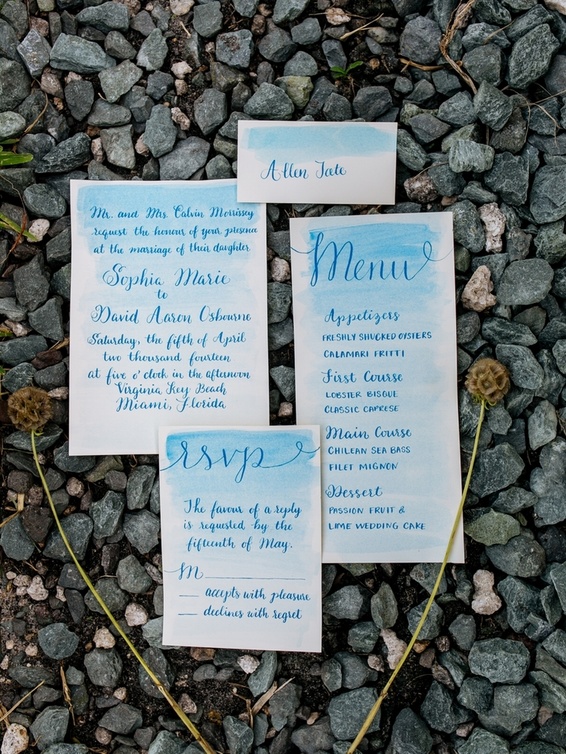 Allen Tate
Mr. and Mrs. Calvin Morrissey
request the honour of your presence
at the marriage of their daughter
Sophia Marie
to
David Aaron Osbourne
Saturday, the fifth of April
two thousand fourteen
at five o'clock in the afternoon
Virginia Key Beach
Miami, Florida
Menu
Appetizers
FRESHLY SHUCKED OYSTERS
CALAMARI FRITTI
First Course
LOBSTER BISQUE
CLASSIC CAPRESE
Main Course
CHILEAN SEA BASS
FILET MIGNON
Dessert
PASSION FRUIT &
LIME WEDDING CAKE
rsvp
The favour of a reply
is requested by the
fifteenth of May.
M
accepts with pleasure
declines with regret